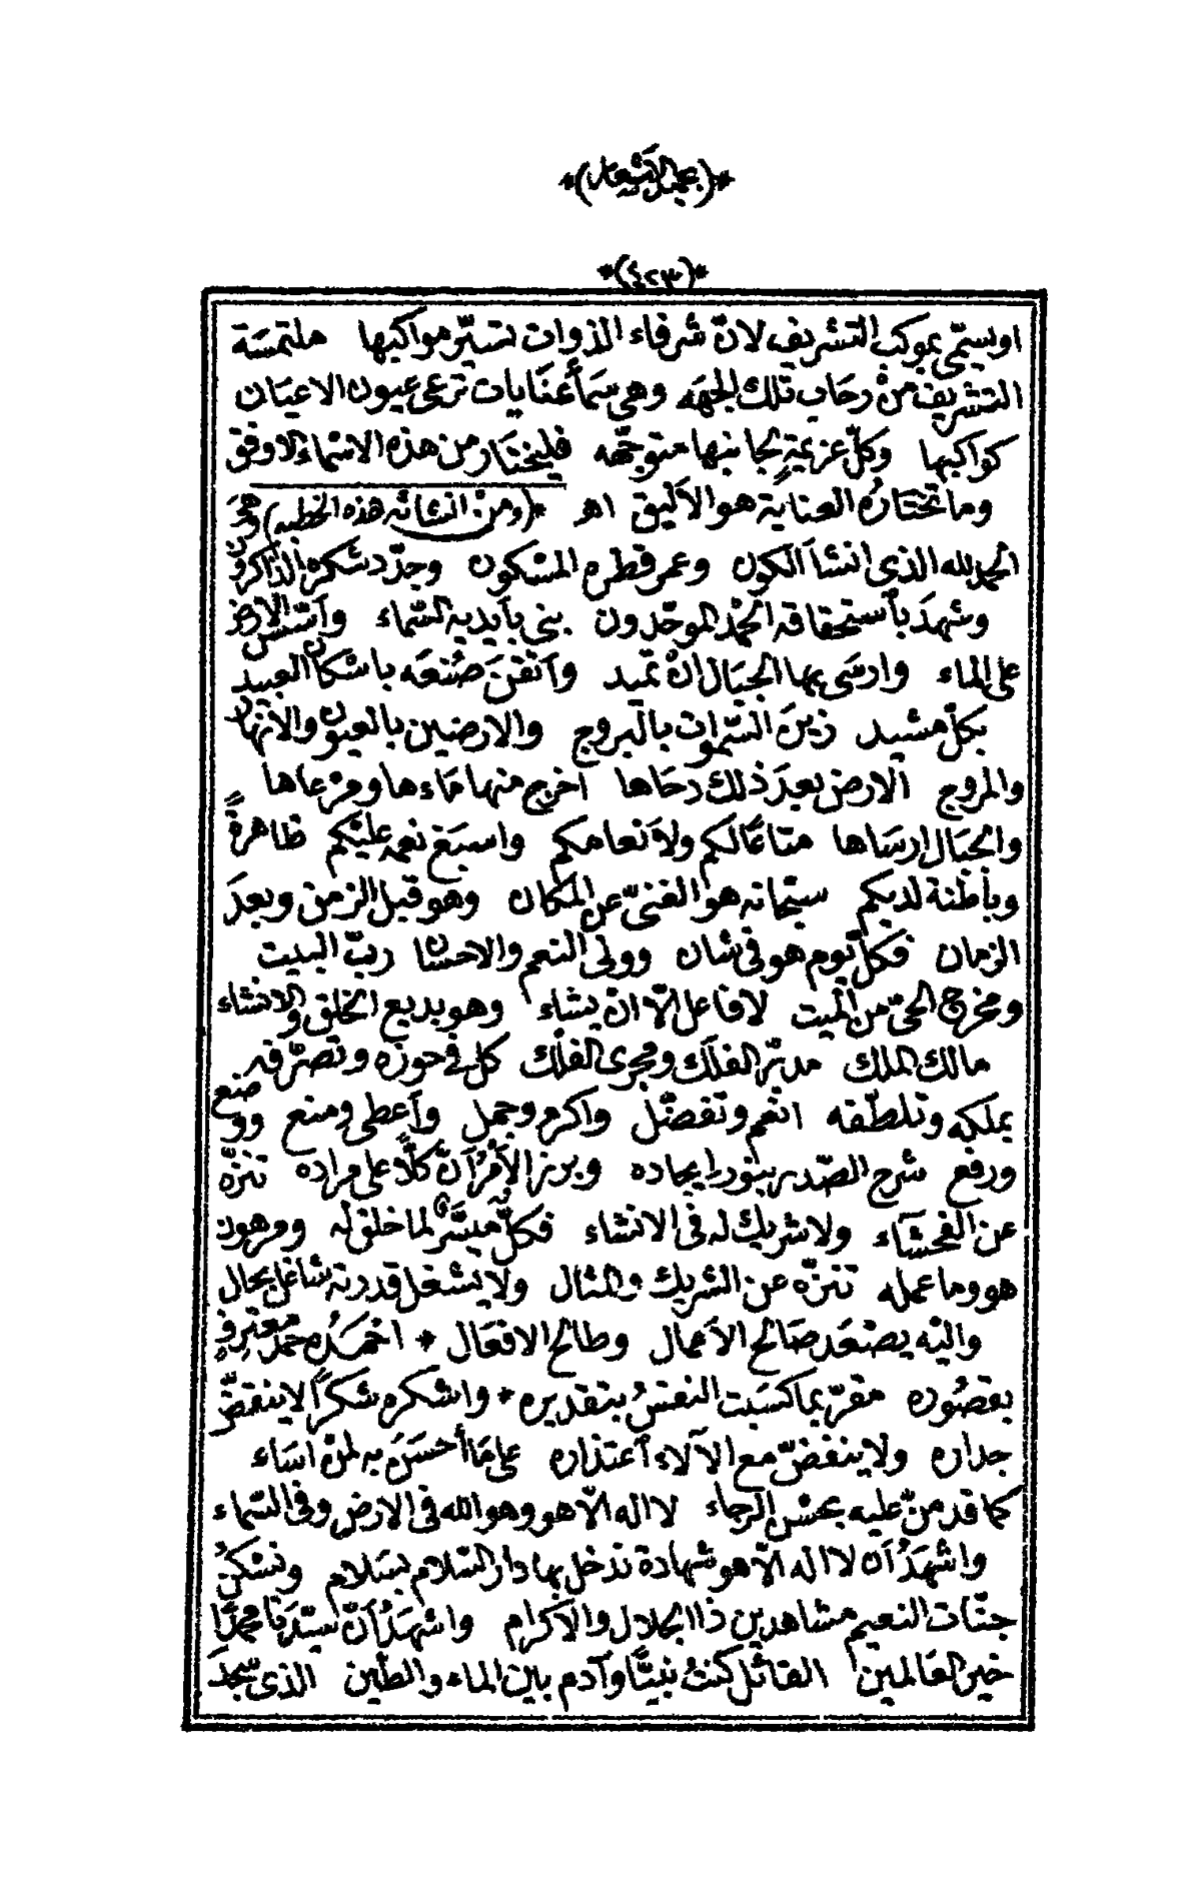 *(بجميل الأشعار)*
*(٤٢٣)*
او يسمّى بموكب التشريف لانّ شرفاء الذوات تسيّر مواكبها ملتمسَة
التشريف منْ رحَاب تلك الجهَه وهى سَمأ عنَايات ترعى عيون الاعيَان
كواكبها وكلّ عزيمةٍ بجانبها متوجّهه فليختَار من هذه الاسْماء الاوفق
وما تختَارُه العناية هو الاَليق اهـ *(ومنْ انشائه هذه الخطبه) وهىَ
الحمد لله الذى انشأ الكون وعمر قطره المسْكون وجدّد شكره الذّاكرون
وشهدَ بأستحقاقه الحمْد الموحّدون بنى بأيديه السّماء وأسّس الارض
على الماء وارسَى بها الجبَال انْ تميد وأتقنَ صُنعَه باسْكان العبيد
بكلّ مشيد زينَ السّموات بالبروج والارضين بالعيون والانهار
والمروج الارض بعدَ ذلك دحَاها اخرج منها مَاءها ومرْعاها
والجبَال ارسَاها متاعًا لكم ولاَنعامكم واسبَغ نعمه عليْكم ظاهرةً
وبأطنة لديكم سبحَانه هو الغنىّ عن المكان وهو قبل الزمن وبعدَ
الزمان فكلّ يوم هو فى شان وولى النعم والاحسان ربّ البيت
ومخرج الحىّ من الميت لا فاعل الاّ انْ يشاء وهو بديع الخلق والانشاء
مالك الملك مدبّر الفلَك ومجرى الفلْك كل فى حوزه وتصرّفه
بملكه وتلطّفه انعم وتفضّل واكرم وجمل وأعطى ومنع ووضع
ورفع شرح الصّدر بنور ايجاده وبرز الاَمْرُ انّ كلًّا على مراده تنزّه
عن الفحشَآء ولا شريك له فى الانشاء فكلّ ميسَّر لما خلق له ومرهون
هو وما عمله تنزّه عن الشريك والمثال ولا يشغل قدرته شاغل بحال
واليْه يصْعَد صَالح الاَعمال وطالح الافعَال * احْمَدُه حمْد معْترِفٍ
بقصُوره مقرّ بما كسَبت النفسُ بتقديره * واشكره شكرًا لا ينقضّ
جداره ولا ينفضّ مع الآلاء أعتذاره على مَا أحسَنَ به لمنْ اسَاء
كما قد منّ عليه بحسْن الرجاء لا اله الاّ هو وهو الله فى الارض وفى السّماء
واشهَدُ أن لا اله الاّ هو شهادة ندخل بها دار السّلام بسَلام ونسْكنُ
جنّات النعيم مشاهدين ذا الجلال والاكرام واشهَدُ أنّ سيّدَنا محمدًا
خير العَالمين القائل كنتُ نبيًّا وآدم بين الماء والطّين الذى سجدَ